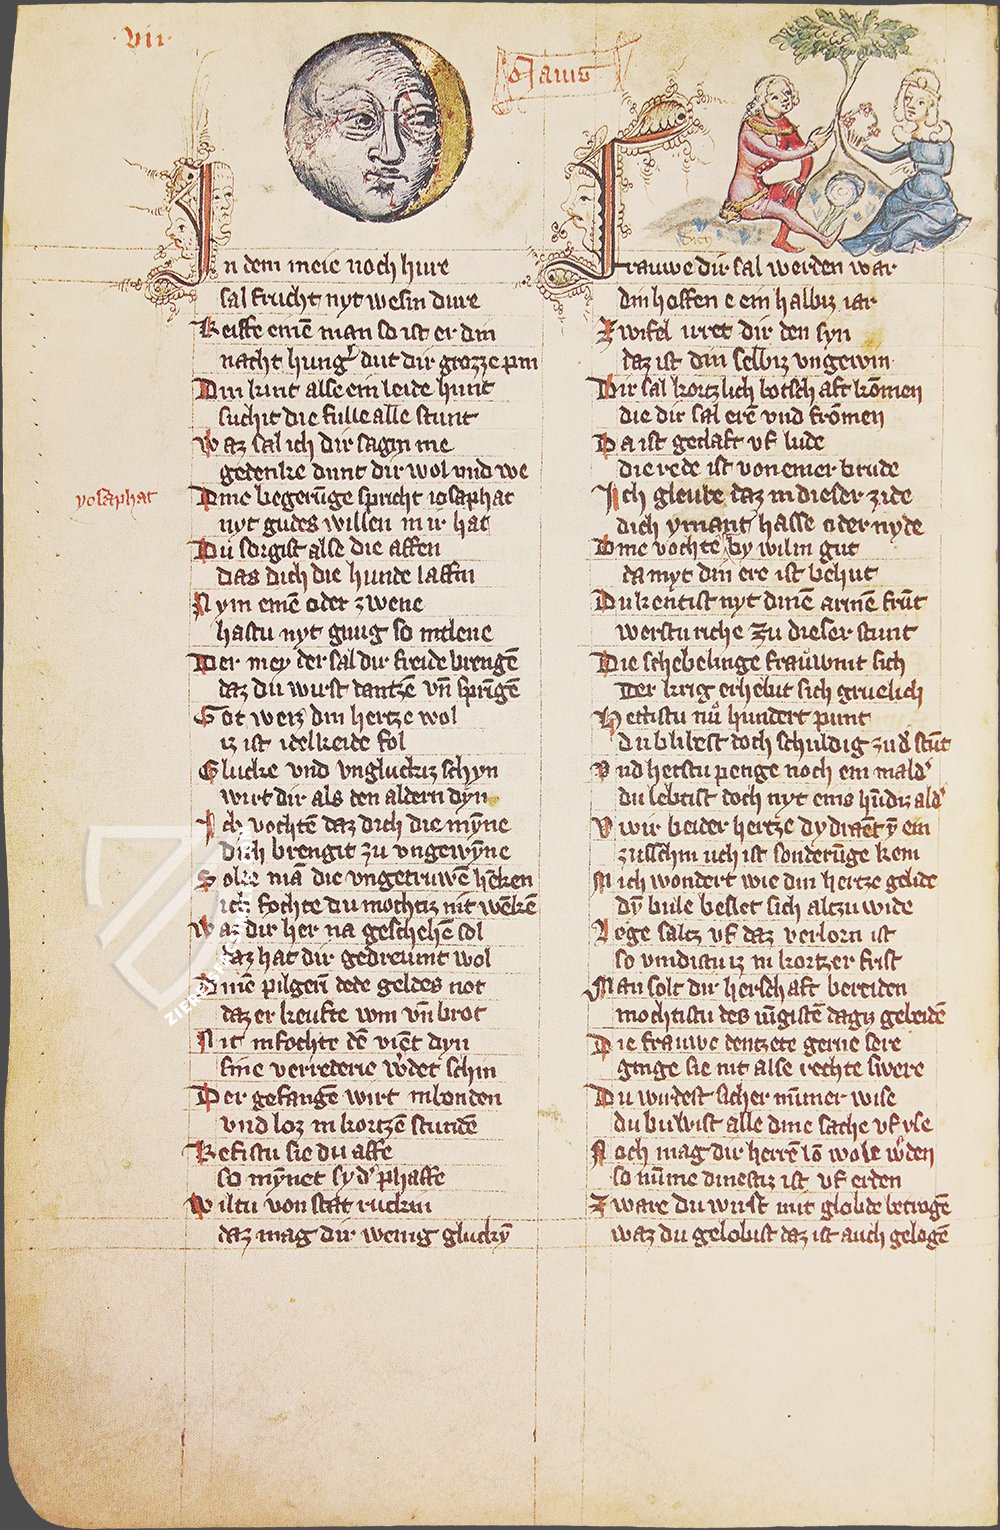 vii
Dauid
In dem meie noch hure
sal frucht nyt wesin dure
Keiffe einē man so ist er din
nacht hung' dut dir grozze pin
Din kint alse ein leide hunt
suchit die fulle alle stunt
Waz sal ich dir sagin me
gedenke dunt dir wol vnd we
yosaphat
Dine begerūge spricht iosaphat
nyt gudes willen in ir hat
Du sorgist alse die affen
das dich die hunde laffin
Nym einē oder zwene
hastu nyt gnug so melene
Der mey der sal dir freide brengē
daz du wirst dantzē vn̄ sprīgē
Got weiz din hertze wol
iz ist idelkeide fol
Glucke vnd vngluckiz schyn
wirt dir als den aldern dyn
Ich vochtē daz dich die mȳne
dich brengit zu vngewȳne
Solde mā die vngetruwē hēken
ich fochte du mochtiz nit wēkē
Waz dir her na geschehē sol
daz hat dir gedreumt wol
Dinē pilgerī dede geldes not
daz er keufte win vn̄ brot
Nit infochte dē viēt dyn
sine verrederie w'det schin
Der gefangē wirt inbonden
vnd loz in kortzē stundē
Refistu sie du affe
so mȳnet sy d' phaffe
Wiltu von stat ruckin
daz mag dir wenig gluckȳ
Frauwe dir sal werden war
din hoffen e ein halbiz iar
Zwifel irret dir den syn
daz ist din selbiz vngewin
Dir sal kortzlich botschaft kōmen
die dir sal erē vnd frōmen
Da ist geclaft vf lude
die rede ist von einer brude
Ich gleube daz in dieser zide
dich ymant hasse oder nyde
Dine vochte by wilin gut
da myt din ere ist behut
Du kentist nyt dinē armē frūt
werstu riche zu dieser stunt
Die schebelinge frauwint sich
Der krig erhebit sich gruelich
Hettistu nu hundert punt
du blibest doch schuldig zu d' stūt
Vnd hetstu penge noch ein mald'
du lebtist doch nyt eins hūdiz ald'
Vwir beider hertze dy draēt ȳ ein
zusschin uch ist sonderūge kein
Mich wondert wie din hertze gelide
dȳ bule besset sich altzu wide
Lege saltz vf daz verlorn ist
so vindistu iz in kortzer frist
Man solt dir herschaft bereiden
mochtistu des iūgistē dagz geleidē
Die frauwe dentzete gerne sere
ginge sie nit alse rechte swere
Du wirdest sicher nūmer wise
du buwist alle dine sache vf yse
Noch mag dir herrē lon wole w'den
so nūme dinestiz ist vf erden
Zware du wirst mit glolde betrogē
waz du gelobist daz ist auch gelogē